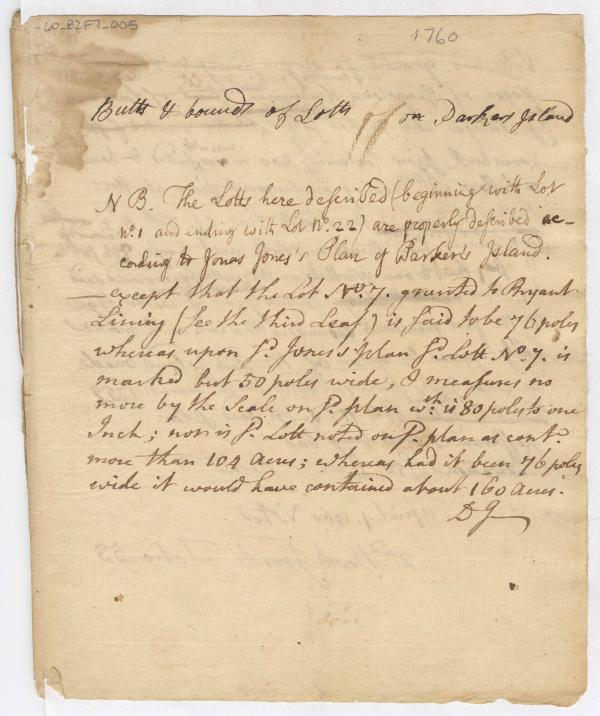 -60_B2F7_005
1760
Butts & bounds of Lotts on Parkers Island
N B. The Lotts here described (beginning with Lot
no. 1 and ending with Lot No. 22) are properly described ac-
cording to Jonas Jones's Plan of Parker's Island.
—except that the Lot No. 7. granted to Bryant
Lining (See the third Leaf) is said to be 76 poles
whereas upon sd. Jones's plan sd. Lott No. 7. is
marked but 50 poles wide, & measures no
more by the Scale on sd. plan wch. is 80 poles to one
Inch; nor is sd. Lott noted on sd. plan as contg.
more than 104 Acres; whereas had it been 76 poles
wide it would have contained about 160 Acres.
D J